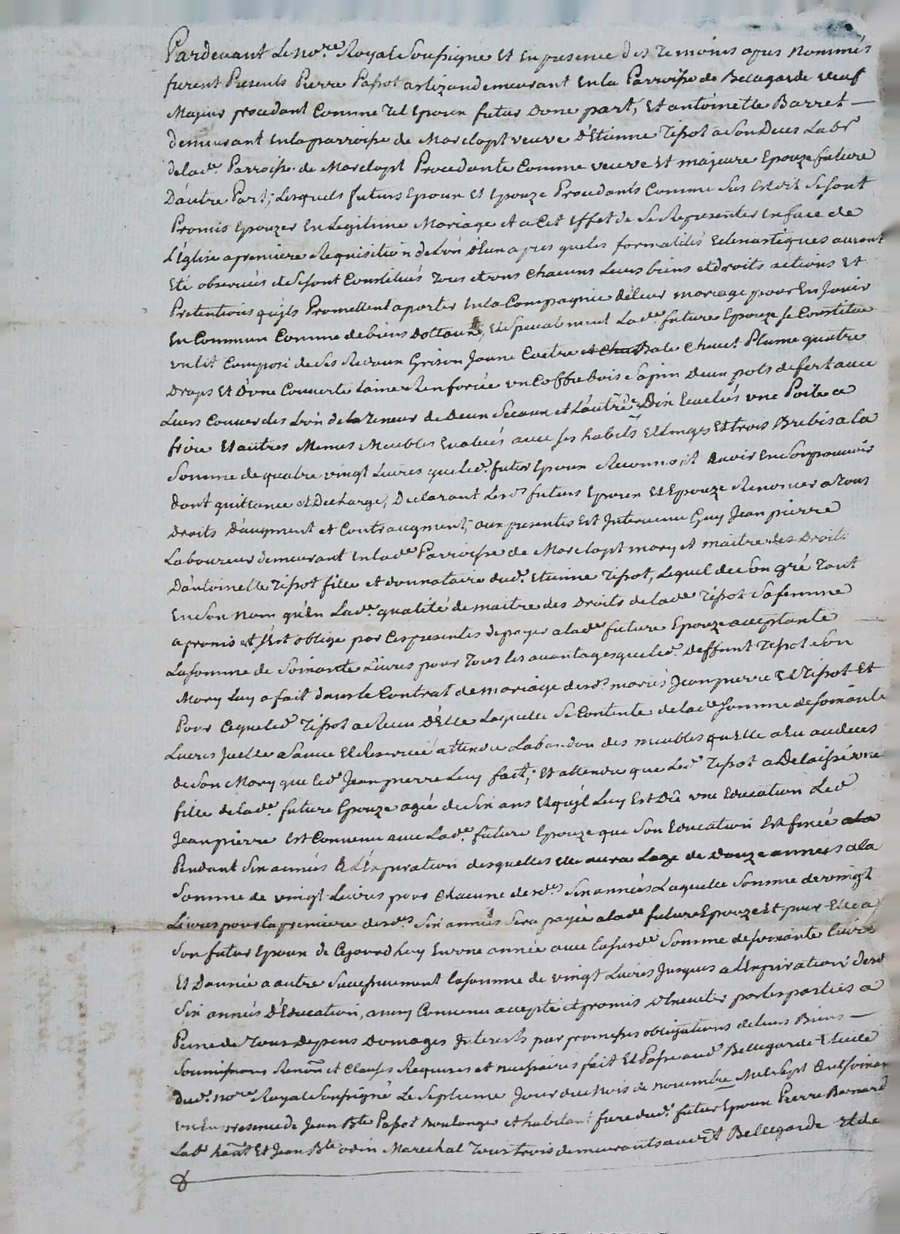 Pardevant Le no.re Royal Soussigne Et En presence des Temoins apres Nommés
furent Presents Pierre Papot artizand demeurant En la Parroisse de Bellegarde veuf
Majeur procedant Comme Tel Epoux futur Dune part, Et antoinette Barret —
demeurant En la parroisse de Marclopt veuve D'Etienne Tissot a Son Deces Lab.r
de lad.e Parroisse de Marclopt Procedante Comme veuve Et majeure Epouze future
D'autre Part; Lesquels futurs Epoux Et Epouze Procedants Comme Sus Est dit Se Sont
Promis Epouzer En Legitime Mariage et a Cet Effet de Se Representer En face de
L'Eglise a premiere Requisition de L'un D'eux apres que les formalités Eclesiastiques auront
Eté observées et Se sont Constitués Tous et uns Chacuns Leurs biens et droits actions Et
Pretentions quils Promettent aporter En la Compagnie de Leur mariage pour En Jouir
En Commun Comme de biens Dottaux, et Specialement Lad.e future Epouze Se Constitue
un Lit Composé de Ses Rideaux Grison Jaune Coetre Chevet Plume quatre
Draps Et D'une Couverte Laine Renforcée un Coffre bois Sapin Deux pots de fert avec
Leurs Couvercles L'un de la Teneur de Deux Seaux et L'autre D'un une Poile a
frire Et autres Menus Meubles Evalués avec Ses habits Et Linges Et trois Brebis a la
Somme de quatre vingt Livres que led. futur Epoux Reconnoit avoir En Son pouvoir
dont quittance et Decharge, Declarant Lesd. futurs Epoux Et Epouze Renoncer a Tous
Droits D'augment et Contraugment; aux presentes Est Intervenu Guy Jean pierre
Laboureur demeurant En lad.e Parroisse de Marclopt mary et maitre des Droits
D'antoinette Tissot fille et donnataire dud. Etienne Tissot, Lequel de Son gré Tant
En Son Nom qu'En Lad.e qualité de maitre des Droits de lad.e Tissot Sa femme
a promis et S'est obligé par Ces presentes de payer a lad.e future Epouze acceptante
La Somme de Soixante Livres pour Tous les avantages que led. deffunt Tissot Son
Mary Luy a fait dans le Contrat de mariage desd. mariés Jean pierre Et Tissot Et
Pour Ce que led. Tissot a Recu D'Elle Laquelle Se Contente de lad.e Somme de Soixante
Livres attendu Labandon des meubles quElle a Eu au deces
de Son Mary que led. Jean pierre Luy fait; Et attendu que Led. Tissot a Delaissé une
fille de lad.e future Epouze agée de Six ans Et qu'il Luy Est Dû une Education Led.
Jean pierre Est Convenu avec Lad.e future Epouze que Son Education Est fixée
Pendant Six années a L'Expiration desquelles Elle aura Lage de douze années a la
Somme de vingt Livres pour Chacune desd. Six années Laquelle Somme de vingt
Livres pour la premiere desd. Six années Sera payée a lad.e future Epouze Et pour Elle a
Son futur Epoux de Cejourdhuy En une année avec la Susd.e Somme de Soixante Livres
Et D'année a autre Successivement la Somme de vingt Livres Jusques a L'Expiration desd.
Six années D'Education, ainsy Convenu accepté et promis Executer par les parties a
Peine de Tous Depens Domages Interests par promesses obligations de leurs Biens —
Soumissions Renon et Clauses Requises et necessaires fait Et Passé aud. Bellegarde Etude
dud. no.re Royal Soussigné Le Septieme Jour du Mois de novembre Mil Sept Cent Soixante
un En presence de Jean B.te Papot Boulanger et habitant frere dud. futur Epoux Pierre Barnard
Lab. hant Et Jean B.te odin Marechal Tous trois demeurants aud. Bellegarde Et de